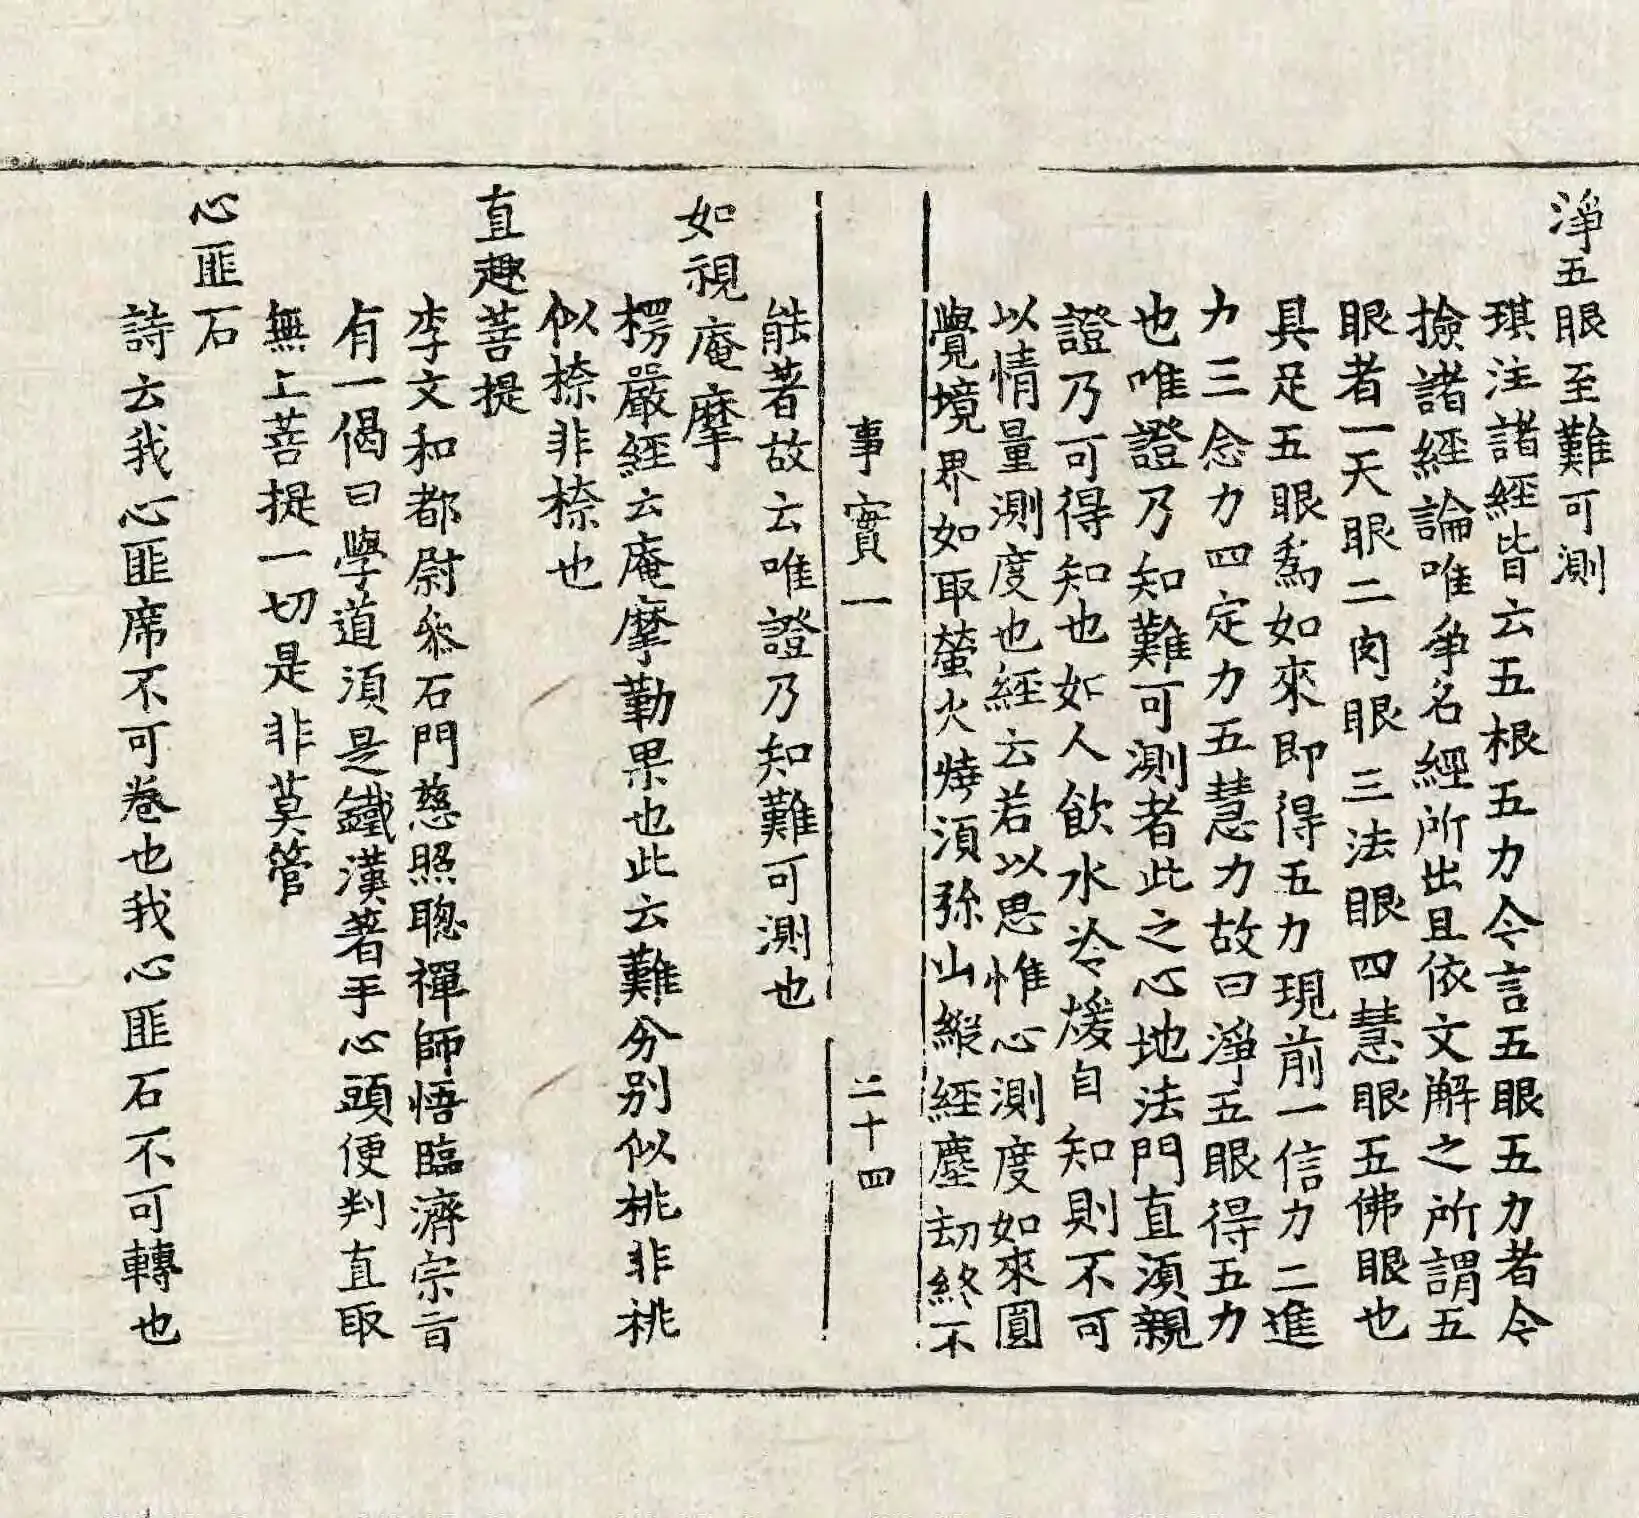 淨五眼至難可測
琪注諸經皆云五根五力今言五眼五力者今
撿諸經論唯爭名經所出且依文解之所謂五
眼者一天眼二肉眼三法眼四慧眼五佛眼也
具足五眼爲如來即得五力現前一信力二進
力三念力四定力五慧力故曰淨五眼得五力
也唯證乃知難可測者此之心地法門直湏親
證乃可得知也如人飲水冷煖自知則不可
以情量測度也經云若以思惟心測度如來圓
覺境界如取螢火燒湏弥山縱經塵刧終不
事實一　二十四
能著故云唯證乃知難可測也
如視庵摩
楞嚴經云庵摩勒果也此云難分別似桃非桃
似㮈非㮈也
直趣菩提
李文和都尉叅石門慈照聰禪師悟臨濟宗旨
有一偈曰學道湏是鐵漢著手心頭便判直取
無上菩提一切是非莫管
心匪石
詩云我心匪席不可卷也我心匪石不可轉也